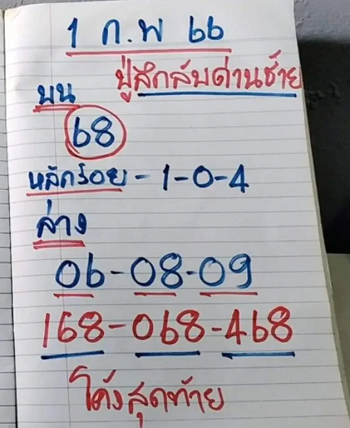 1 ก.พ 66
ปู่สึกลับด่านซ้าย
บน
68
หลักร้อย - 1-0-4
ล่าง
06-08-09
168-068-468
โค้งสุดท้าย